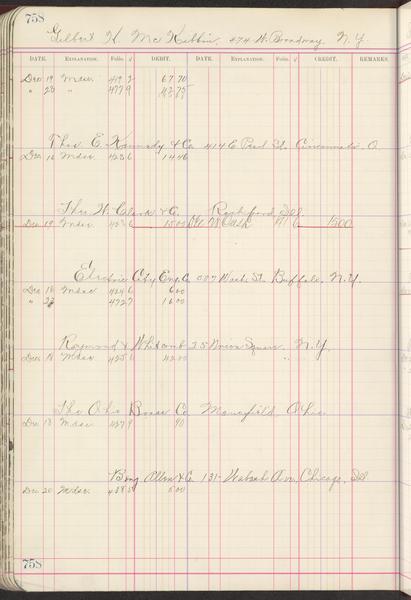 758
Gilbert H. McKibbin, 474 W. Broadway, N.Y.
DATE. EXPLANATION. Folio. DEBIT. DATE. EXPLANATION. Folio. CREDIT. REMARKS.
Dec 19 Mdse. 67.70
" 23 " 4779
Thos. E. Kennedy & Co 414 E Pearl St. Cincinnati, O.
Dec 16 Mdse 4236 14 46
Thos. W. Clark & Co. Rockford, Ill.
Dec 19 Mdse. 15 00 15 00
Electric City Eng. Co. 507 Wash. St. Buffalo, N.Y.
Dec 18 Mdse 6 00
" 23 " 4727 16 00
Raymond & Whitcomb 25 Union Square, N.Y.
Dec 18 Mdse 42.00
The Ohio Brass Co Mansfield, Ohio
Dec 18 Mdse. 4279 90
Benj. Allen & Co 131- Wabash Ave, Chicago, Ill.
Dec 20 Mdse. 5 00
758